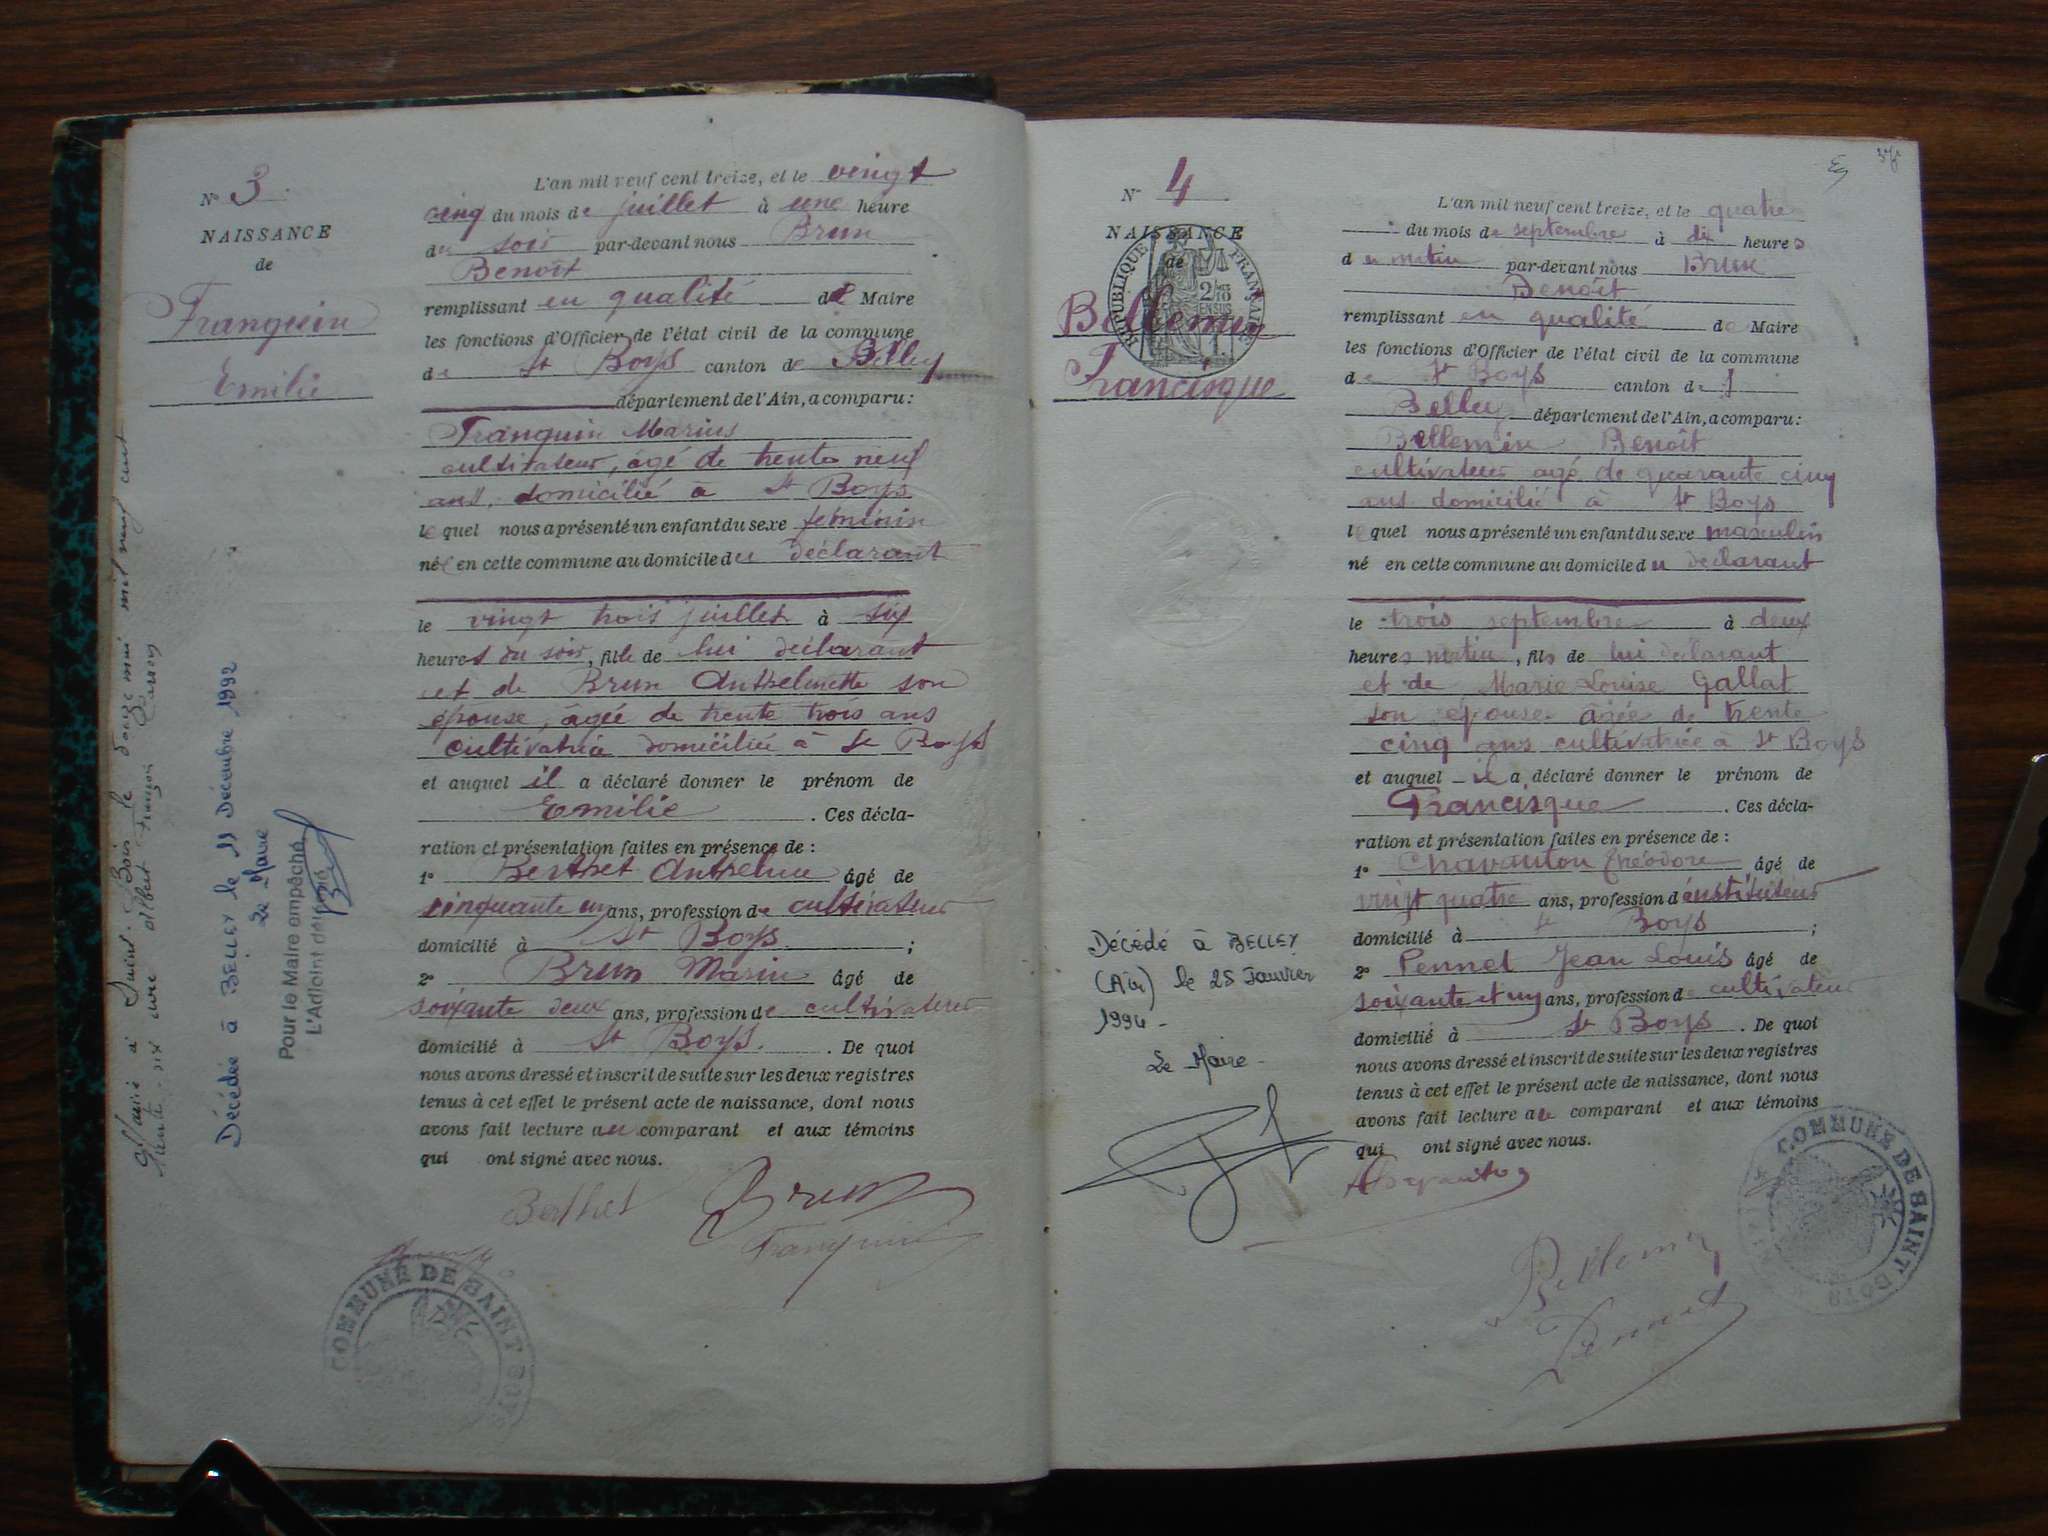 N° 3
NAISSANCE
de
Franquin
Emilie
L'an mil neuf cent treize, et le vingt
cinq du mois de juillet à une heure
du soir par-devant nous Brun
Benoît
remplissant en qualité de Maire
les fonctions d'Officier de l'état civil de la commune
de St Boys canton de Belley
département de l'Ain, a comparu :
Franquin Marius
cultivateur, âgé de trente neuf
ans, domicilié à St Boys
lequel nous a présenté un enfant du sexe féminin
née en cette commune au domicile du déclarant
le vingt trois juillet à six
heures du soir, fille de lui déclarant
et de Brun Anthelmette son
épouse, âgée de trente trois ans
cultivatrice domiciliée à St Boys
et auquel il a déclaré donner le prénom de
Emilie . Ces décla-
ration et présentation faites en présence de :
1° Berthet Anthelme âgé de
cinquante un ans, profession de cultivateur
domicilié à St Boys ;
2° Brun Marin âgé de
soixante deux ans, profession de cultivateur
domicilié à St Boys . De quoi
nous avons dressé et inscrit de suite sur les deux registres
tenus à cet effet le présent acte de naissance, dont nous
avons fait lecture au comparant et aux témoins
qui ont signé avec nous.
Berthet Brun
Franquin
COMMUNE DE SAINT BOYS
Mariée à Saint-Bois le douze mai mil neuf cent
trente-six avec Albert François
Décédée à BELLEY le 11 Décembre 1992
Le Maire
Pour le Maire empêché
L'Adjoint délégué
N° 4
NAISSANCE
de
RÉPUBLIQUE FRANÇAISE
Bellemin
Francisque
L'an mil neuf cent treize, et le quatre
du mois de septembre à dix heures
du matin par-devant nous Brun
Benoît
remplissant en qualité de Maire
les fonctions d'Officier de l'état civil de la commune
de St Boys canton de
Belley département de l'Ain, a comparu :
Bellemin Benoît
cultivateur agé de quarante cinq
ans domicilié à St Boys
lequel nous a présenté un enfant du sexe masculin
né en cette commune au domicile du déclarant
le trois septembre à deux
heures matin, fils de lui déclarant
et de Marie Louise Gallat
son épouse âgée de trente
cinq ans cultivatrice à St Boys
et auquel il a déclaré donner le prénom de
Francisque . Ces décla-
ration et présentation faites en présence de :
1° Chavanton Théodore âgé de
vingt quatre ans, profession d'instituteur
domicilié à St Boys ;
2° Pennet Jean Louis âgé de
soixante et un ans, profession de cultivateur
domicilié à St Boys . De quoi
nous avons dressé et inscrit de suite sur les deux registres
tenus à cet effet le présent acte de naissance, dont nous
avons fait lecture au comparant et aux témoins
qui ont signé avec nous.
Bellemin
Pennet
COMMUNE DE SAINT BOYS
Décédé à BELLEY
(Ain) le 25 Janvier
1994 -
Le Maire -